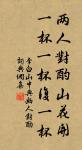 兩人對酌山花開
一杯一杯復一杯
李白山中與幽人對酌
詞典網集